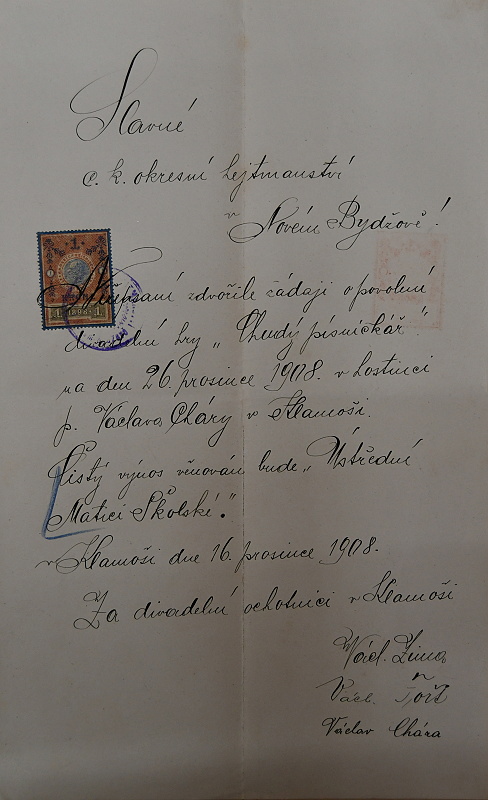 Slavné
c. k. okresní hejtmanství
v Novém Bydžově!
1
1 1898 1
Níže psaní zdvořile žádají o povolení
divadelní hry „Chudý písničkář“
na den 26. prosince 1908. v hostinci
p. Václava Cháry v Klamoši.
Čistý výnos věnován bude „Ústřední
Matici Školské.“
v Klamoši dne 16. prosince 1908.
Za divadelní ochotníci v Klamoši
Václ. Zima
Václ.
Václav Chára